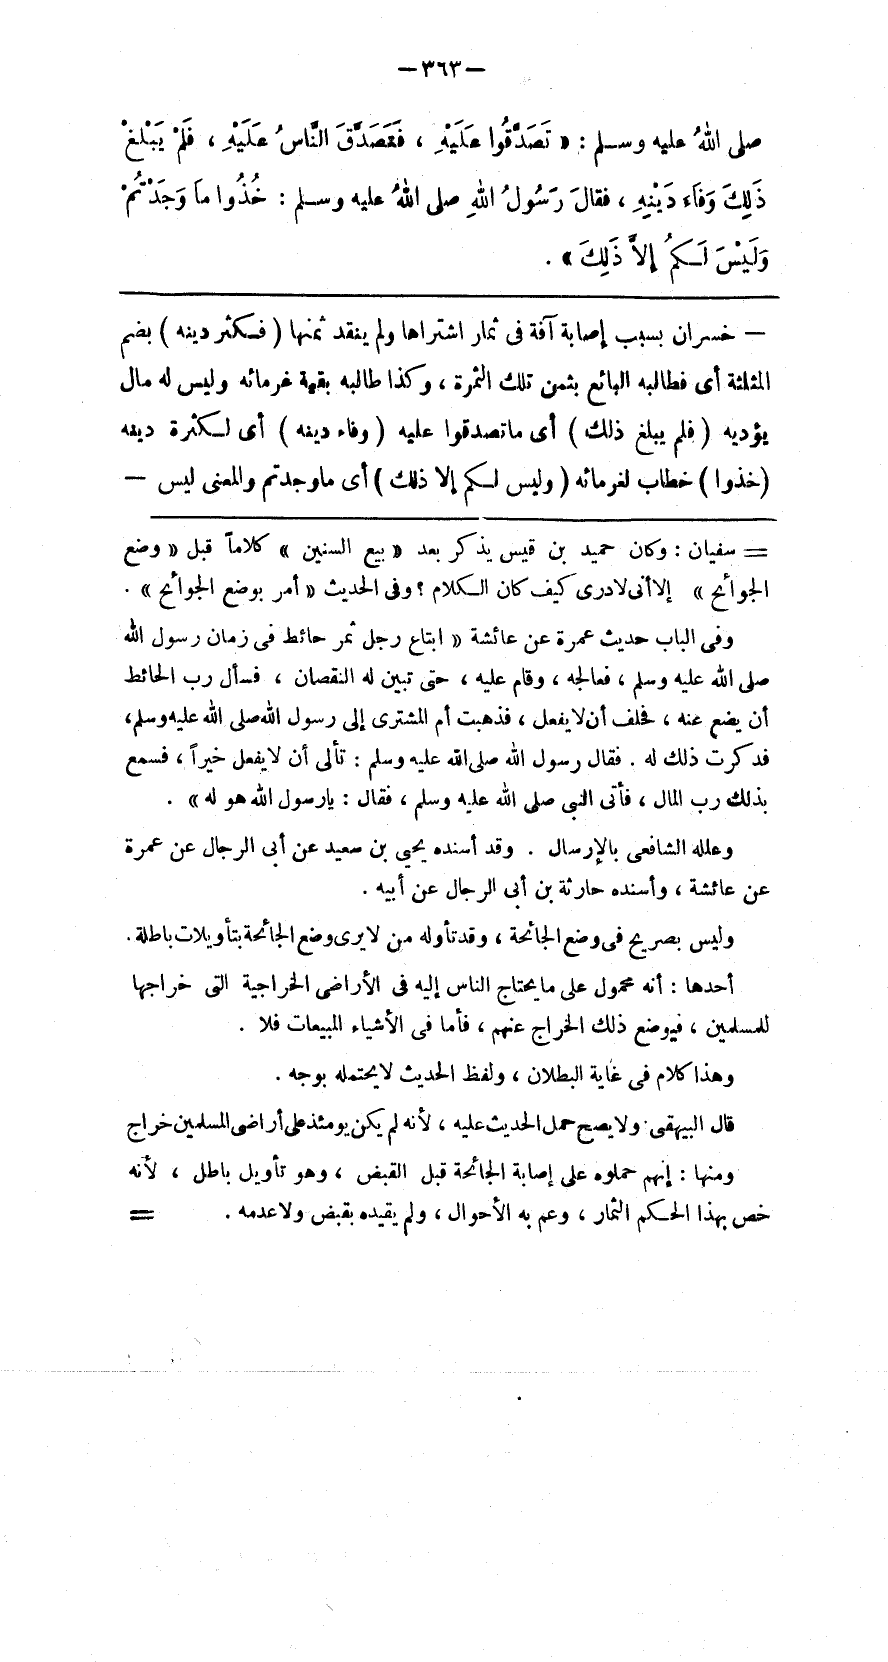 —٣٦٣—
صلى اللهُ عليه وسلم : « تَصَدَّقُوا عَلَيْهِ ، فَتَصَدَّقَ النَّاسُ عَلَيْهِ ، فَلَمْ يَبْلغْ
ذَلِكَ وَفَاء دَيْنِهِ ، فقالَ رَسُولُ اللهِ صلى اللهُ عليه وسلم : خُذُوا ما وَجَدْتُمْ
وَلَيْسَ لَكمُ إلاَّ ذَلِكَ » .
— خسران بسبب إصابة آفة فى ثمار اشتراها ولم ينقد ثمنها ( فكثر دينه ) بضم
المثلثة أى فطالبه البائع بثمن تلك الثمرة ، وكذا طالبه بقية غرمائه وليس له مال
يؤديه ( فلم يبلغ ذلك ) أى ماتصدقوا عليه ( وفاء دينه ) أى لكثرة دينه
(خذوا ) خطاب لغرمائه ( وليس لكم إلا ذلك ) أى ماوجدتم والمعنى ليس —
= سفيان : وكان حميد بن قيس يذكر بعد « بيع السنين » كلاماً قبل « وضع
الجوائح » إلا أنى لا درى كيف كان الكلام ؟ وفى الحديث « أمر بوضع الجوائح » .
وفى الباب حديث عمرة عن عائشة « ابتاع رجل ثمر حائط فى زمان رسول الله
صلى الله عليه وسلم ، فعالجه ، وقام عليه ، حتى تبين له النقصان ، فسأل رب الحائط
أن يضع عنه ، فحلف أن لايفعل ، فذهبت أم المشترى إلى رسول الله صلى الله عليه وسلم،
فذكرت ذلك له . فقال رسول الله صلى الله عليه وسلم : تألى أن لايفعل خيراً ، فسمع
بذلك رب المال ، فأتى النبى صلى الله عليه وسلم ، فقال : يارسول الله هو له » .
وعلله الشافعى بالإرسال . وقد أسنده يحيى بن سعيد عن أبى الرجال عن عمرة
عن عائشة ، وأسنده حارثة بن أبى الرجال عن أبيه .
وليس بصريح فى وضع الجائحة ، وقد تأوله من لايرى وضع الجائحة بتأويلات باطلة .
أحدها : أنه محمول على ما يحتاج الناس إليه فى الأراضى الخراجية التى خراجها
للمسلمين ، فيوضع ذلك الخراج عنهم ، فأما فى الأشياء المبيعات فلا .
وهذا كلام فى غاية البطلان ، ولفظ الحديث لايحتمله بوجه .
قال البيهقى . ولا يصح حمل الحديث عليه ، لأنه لم يكن يومئذ على أراضى المسلمين خراج
ومنها : إنهم حملوه على إصابة الجائحة قبل القبض ، وهو تأويل باطل ، لأنه
خص بهذا الحكم الثمار ، وعم به الأحوال ، ولم يقيده بقبض ولا عدمه . =